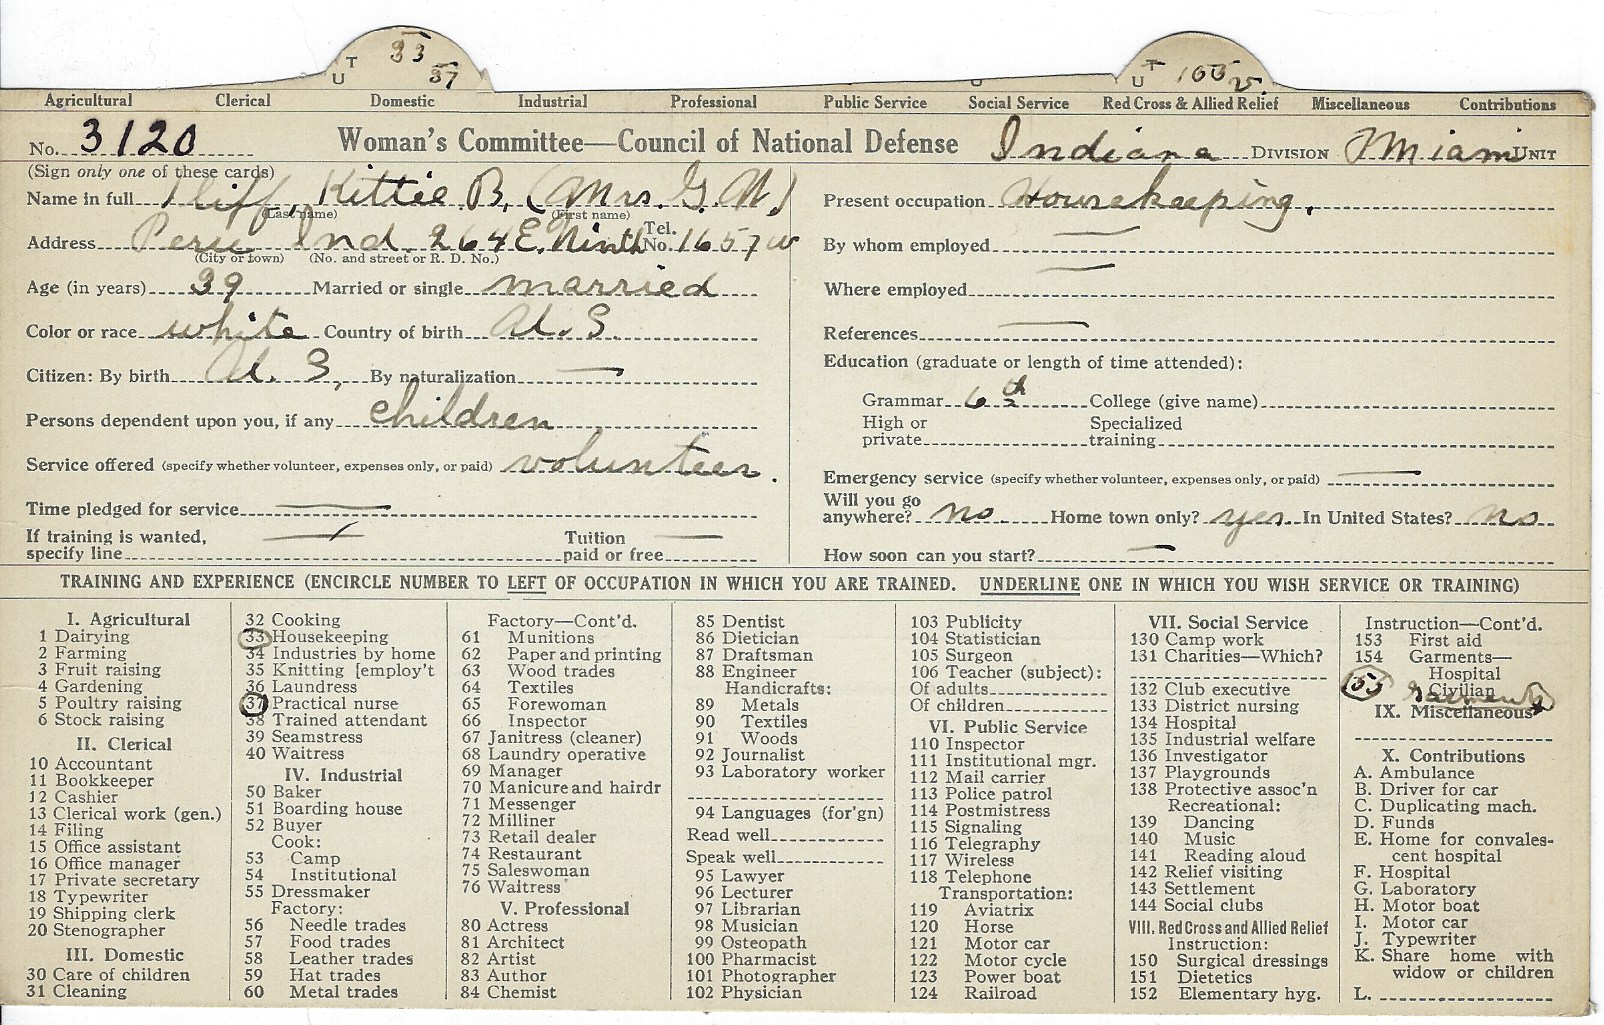 T 33
U 37
U T 155
Agricultural Clerical Domestic Industrial Professional Public Service Social Service Red Cross & Allied Relief Miscellaneous Contributions
No. 3120 Woman's Committee—Council of National Defense Indiana DIVISION Miami UNIT
(Sign only one of these cards)
Name in full Iliff, Kittie B. (Mrs. G. W.)
(Last name) (First name)
Address Peru Ind 264 E. Ninth Tel. No. 1657 w
(City or town) (No. and street or R. D. No.)
Age (in years) 39 Married or single married
Color or race white Country of birth U. S.
Citizen: By birth U. S, By naturalization —
Persons dependent upon you, if any children
Service offered (specify whether volunteer, expenses only, or paid) volunteer.
Time pledged for service —
If training is wanted, specify line — Tuition paid or free —
Present occupation Housekeeping.
By whom employed —
Where employed —
References —
Education (graduate or length of time attended):
Grammar 6th College (give name)
High or private Specialized training
Emergency service (specify whether volunteer, expenses only, or paid) —
Will you go anywhere? no Home town only? yes In United States? no
How soon can you start? —
TRAINING AND EXPERIENCE (ENCIRCLE NUMBER TO LEFT OF OCCUPATION IN WHICH YOU ARE TRAINED. UNDERLINE ONE IN WHICH YOU WISH SERVICE OR TRAINING)
I. Agricultural
1 Dairying
2 Farming
3 Fruit raising
4 Gardening
5 Poultry raising
6 Stock raising
II. Clerical
10 Accountant
11 Bookkeeper
12 Cashier
13 Clerical work (gen.)
14 Filing
15 Office assistant
16 Office manager
17 Private secretary
18 Typewriter
19 Shipping clerk
20 Stenographer
III. Domestic
30 Care of children
31 Cleaning
32 Cooking
33 Housekeeping
34 Industries by home
35 Knitting [employ't
36 Laundress
37 Practical nurse
38 Trained attendant
39 Seamstress
40 Waitress
IV. Industrial
50 Baker
51 Boarding house
52 Buyer
Cook:
53 Camp
54 Institutional
55 Dressmaker
Factory:
56 Needle trades
57 Food trades
58 Leather trades
59 Hat trades
60 Metal trades
Factory—Cont'd.
61 Munitions
62 Paper and printing
63 Wood trades
64 Textiles
65 Forewoman
66 Inspector
67 Janitress (cleaner)
68 Laundry operative
69 Manager
70 Manicure and hairdr
71 Messenger
72 Milliner
73 Retail dealer
74 Restaurant
75 Saleswoman
76 Waitress
V. Professional
80 Actress
81 Architect
82 Artist
83 Author
84 Chemist
85 Dentist
86 Dietician
87 Draftsman
88 Engineer
Handicrafts:
89 Metals
90 Textiles
91 Woods
92 Journalist
93 Laboratory worker
94 Languages (for'gn)
Read well
Speak well
95 Lawyer
96 Lecturer
97 Librarian
98 Musician
99 Osteopath
100 Pharmacist
101 Photographer
102 Physician
103 Publicity
104 Statistician
105 Surgeon
106 Teacher (subject):
Of adults
Of children
VI. Public Service
110 Inspector
111 Institutional mgr.
112 Mail carrier
113 Police patrol
114 Postmistress
115 Signaling
116 Telegraphy
117 Wireless
118 Telephone
Transportation:
119 Aviatrix
120 Horse
121 Motor car
122 Motor cycle
123 Power boat
124 Railroad
VII. Social Service
130 Camp work
131 Charities—Which?
132 Club executive
133 District nursing
134 Hospital
135 Industrial welfare
136 Investigator
137 Playgrounds
138 Protective assoc'n
Recreational:
139 Dancing
140 Music
141 Reading aloud
142 Relief visiting
143 Settlement
144 Social clubs
VIII. Red Cross and Allied Relief
Instruction:
150 Surgical dressings
151 Dietetics
152 Elementary hyg.
Instruction—Cont'd.
153 First aid
154 Garments—
Hospital
Civilian
155 garments
IX. Miscellaneous
X. Contributions
A. Ambulance
B. Driver for car
C. Duplicating mach.
D. Funds
E. Home for convales-
cent hospital
F. Hospital
G. Laboratory
H. Motor boat
I. Motor car
J. Typewriter
K. Share home with
widow or children
L.